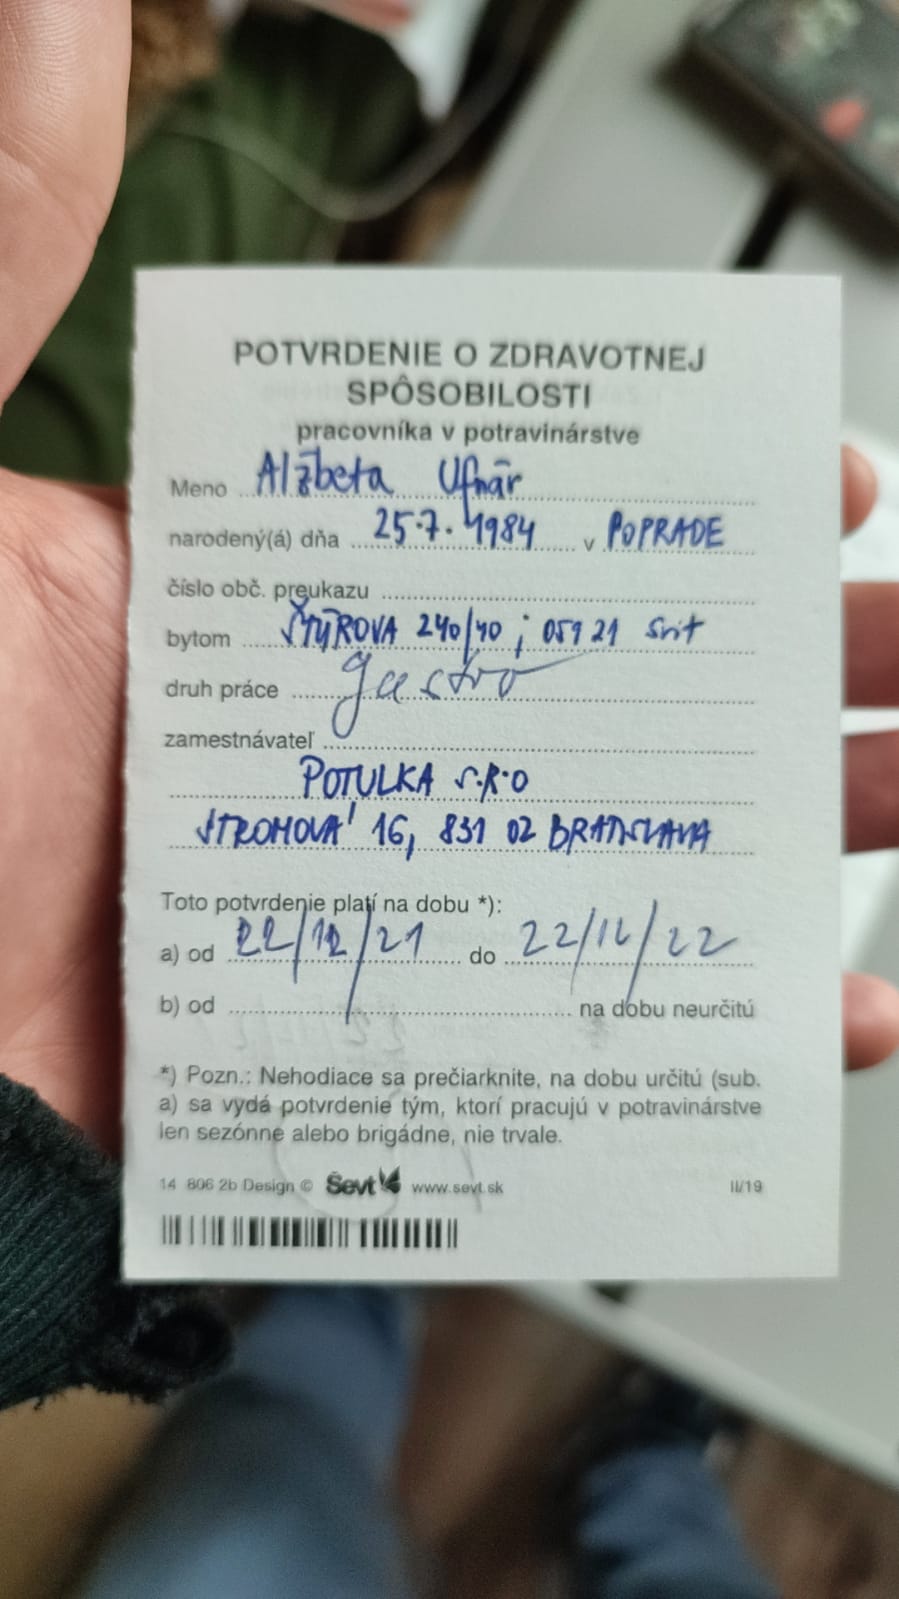 POTVRDENIE O ZDRAVOTNEJ
SPÔSOBILOSTI
pracovníka v potravinárstve
Meno Alžbeta Ufnár
narodený(á) dňa 25.7.1984 v POPRADE
číslo obč. preukazu
bytom ŠTÚROVA 240/40; 059 21 Svit
druh práce gastro
zamestnávateľ
POTULKA S.R.O
STROMOVÁ 16, 831 02 BRATISLAVA
Toto potvrdenie platí na dobu *):
a) od 22/12/21 do 22/12/22
b) od na dobu neurčitú
*) Pozn.: Nehodiace sa prečiarknite, na dobu určitú (sub.
a) sa vydá potvrdenie tým, ktorí pracujú v potravinárstve
len sezónne alebo brigádne, nie trvale.
14 806 2b Design © Ševt www.sevt.sk II/19